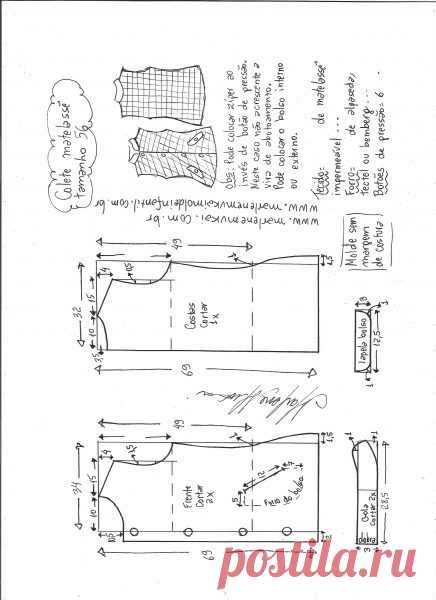 Colete matelassê
tamanho 56
Obs: Pode colocar zíper ao
invés de botão de pressão.
Neste caso não acrescente a
vira de abotoamento.
Pode colocar o bolso interno
ou externo.
www.marlenemukaimoldeinfantil.com.br
www.marlenemukai.com.br
Tecido: de matelassê
impermeável...
Forro: de alpaseda,
tectel ou bemberg...
Botões de pressão: 6
Molde sem
margem
de costura
49
4
15
10
32
3,5
1,5
Costas
Cortar
1x
69
tapela bolso
8
12,5
1
1
49
4
15
10
34
1,5
Frente
Cortar
2x
12
5
Filete do bolso
69
2
Gola
Cortar 2x
28,5
3
1
1
postila.ru